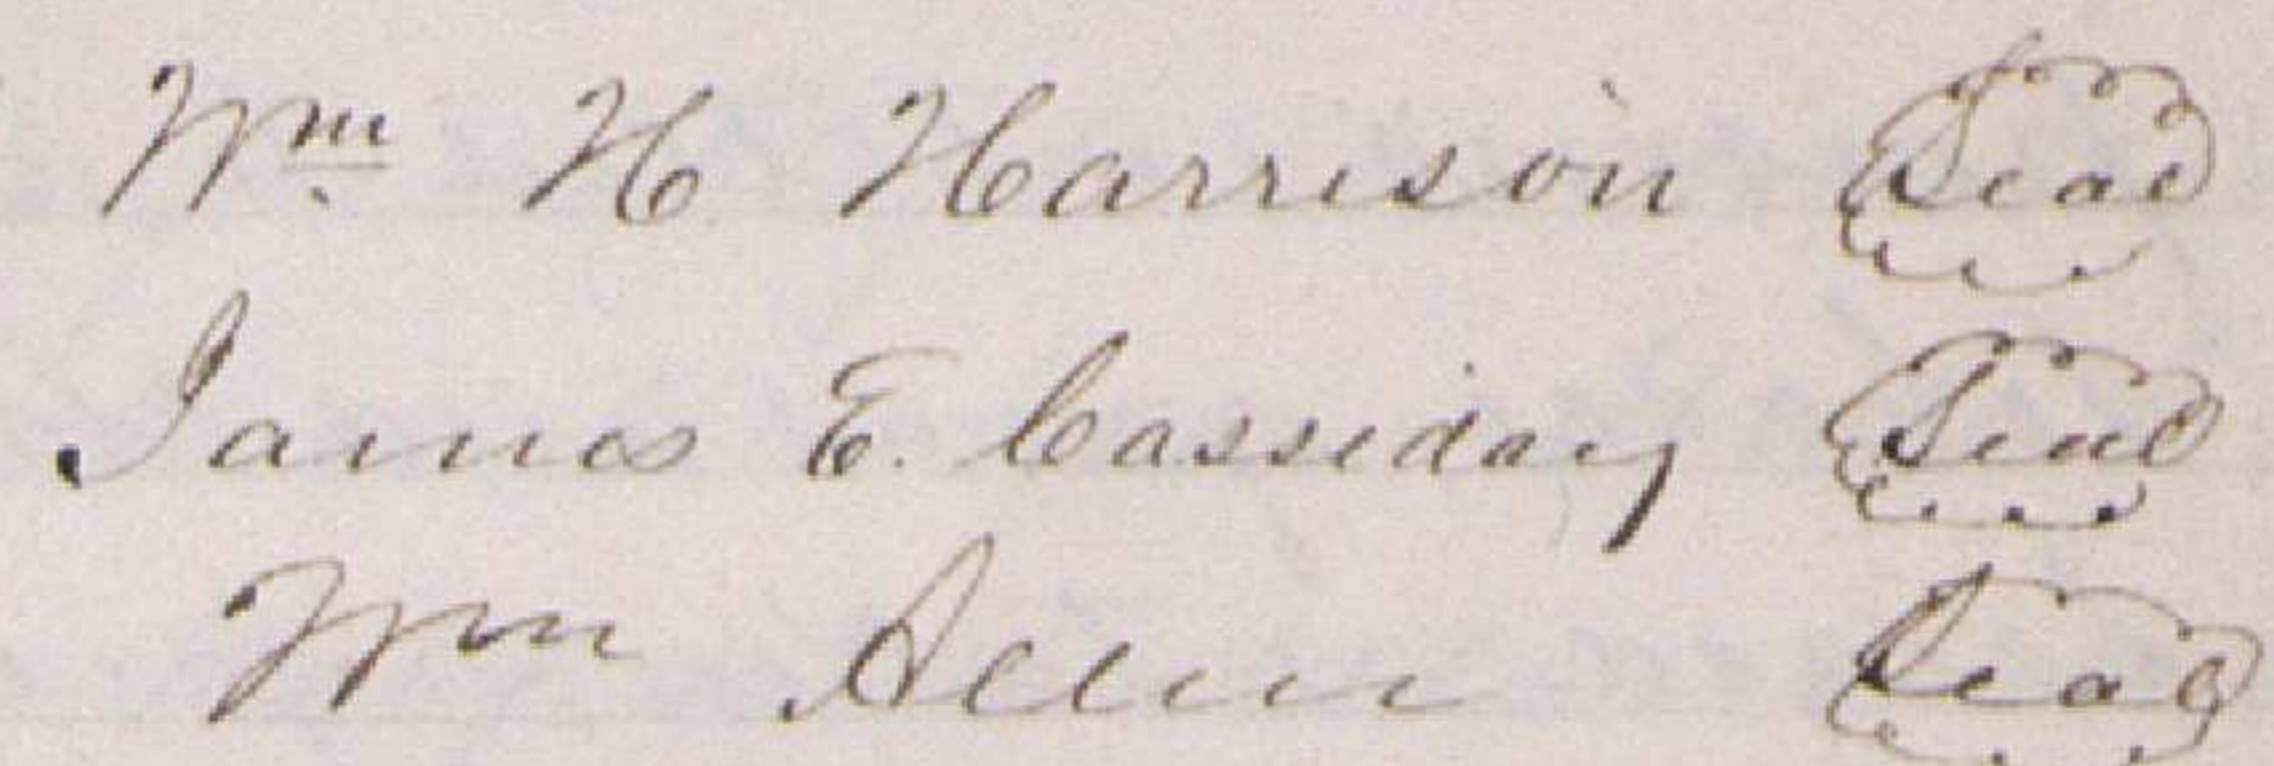 Wm H Harrison Seal
James E. Cassiday Seal
Wm Seal